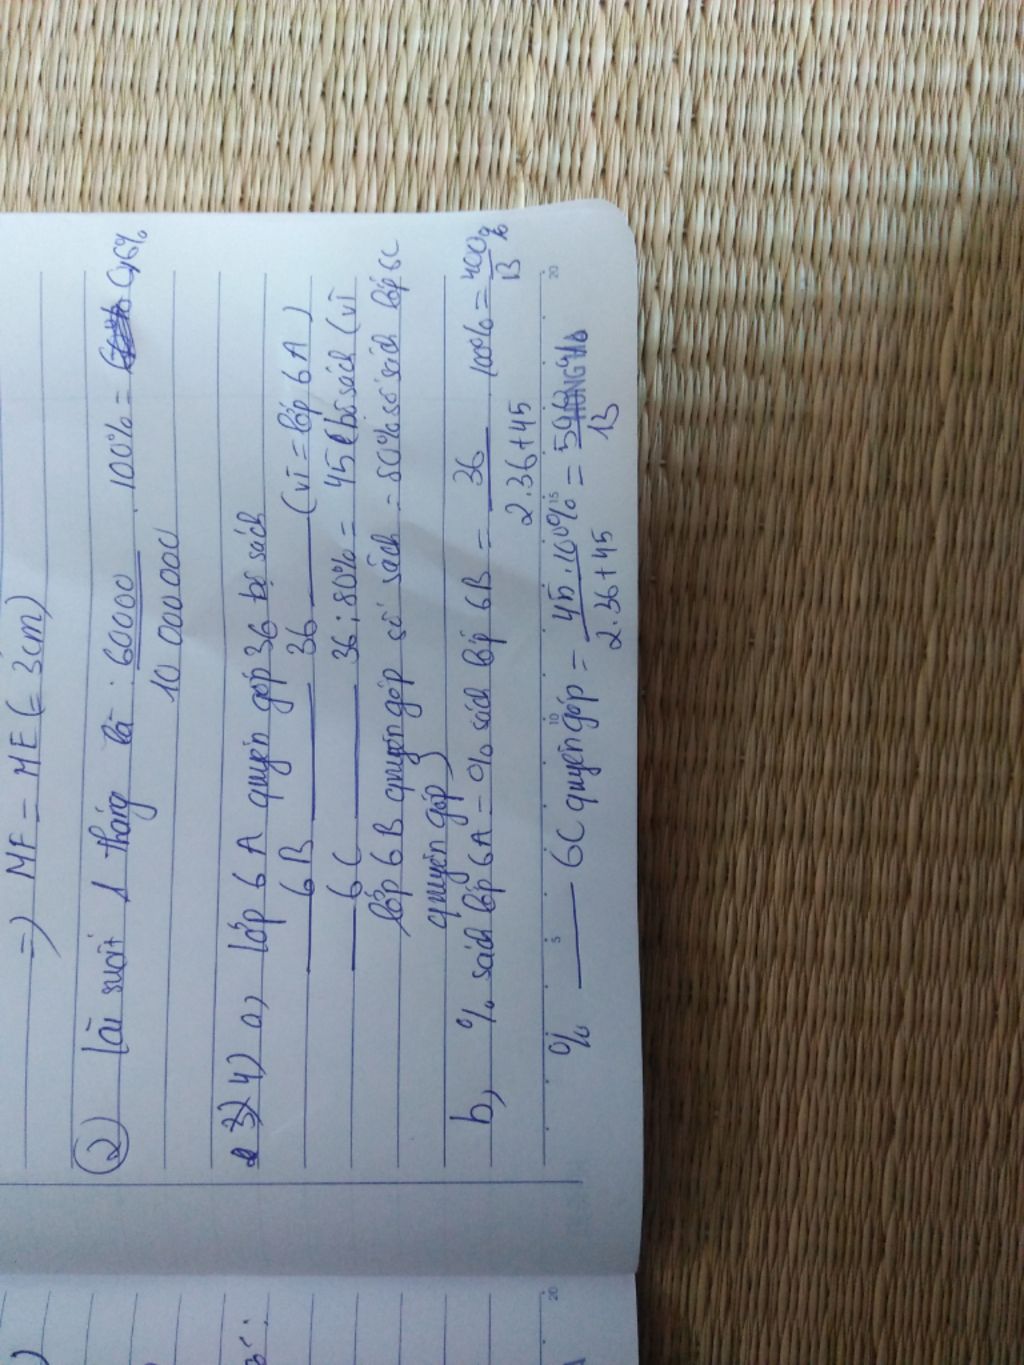 =) MF = ME (= 3cm)
2) lãi suất 1 tháng là : 60000/10 000 000 . 100% = 0,6%
3) 4) a) lớp 6A quyên góp 36 bộ sách
___ 6B ___ 36 ___ (vì = lớp 6A)
___ 6C ___ 36 : 80% = 45 (bộ sách (vì
lớp 6B quyên góp số sách = 80% số sách lớp 6C
quyên góp)
b, % sách lớp 6A = % sách lớp 6B = 36/2.36+45 100% = 400/13 %
% ___ 6C quyên góp = 45.100%/2.36+45 =
5
10
15
20
20